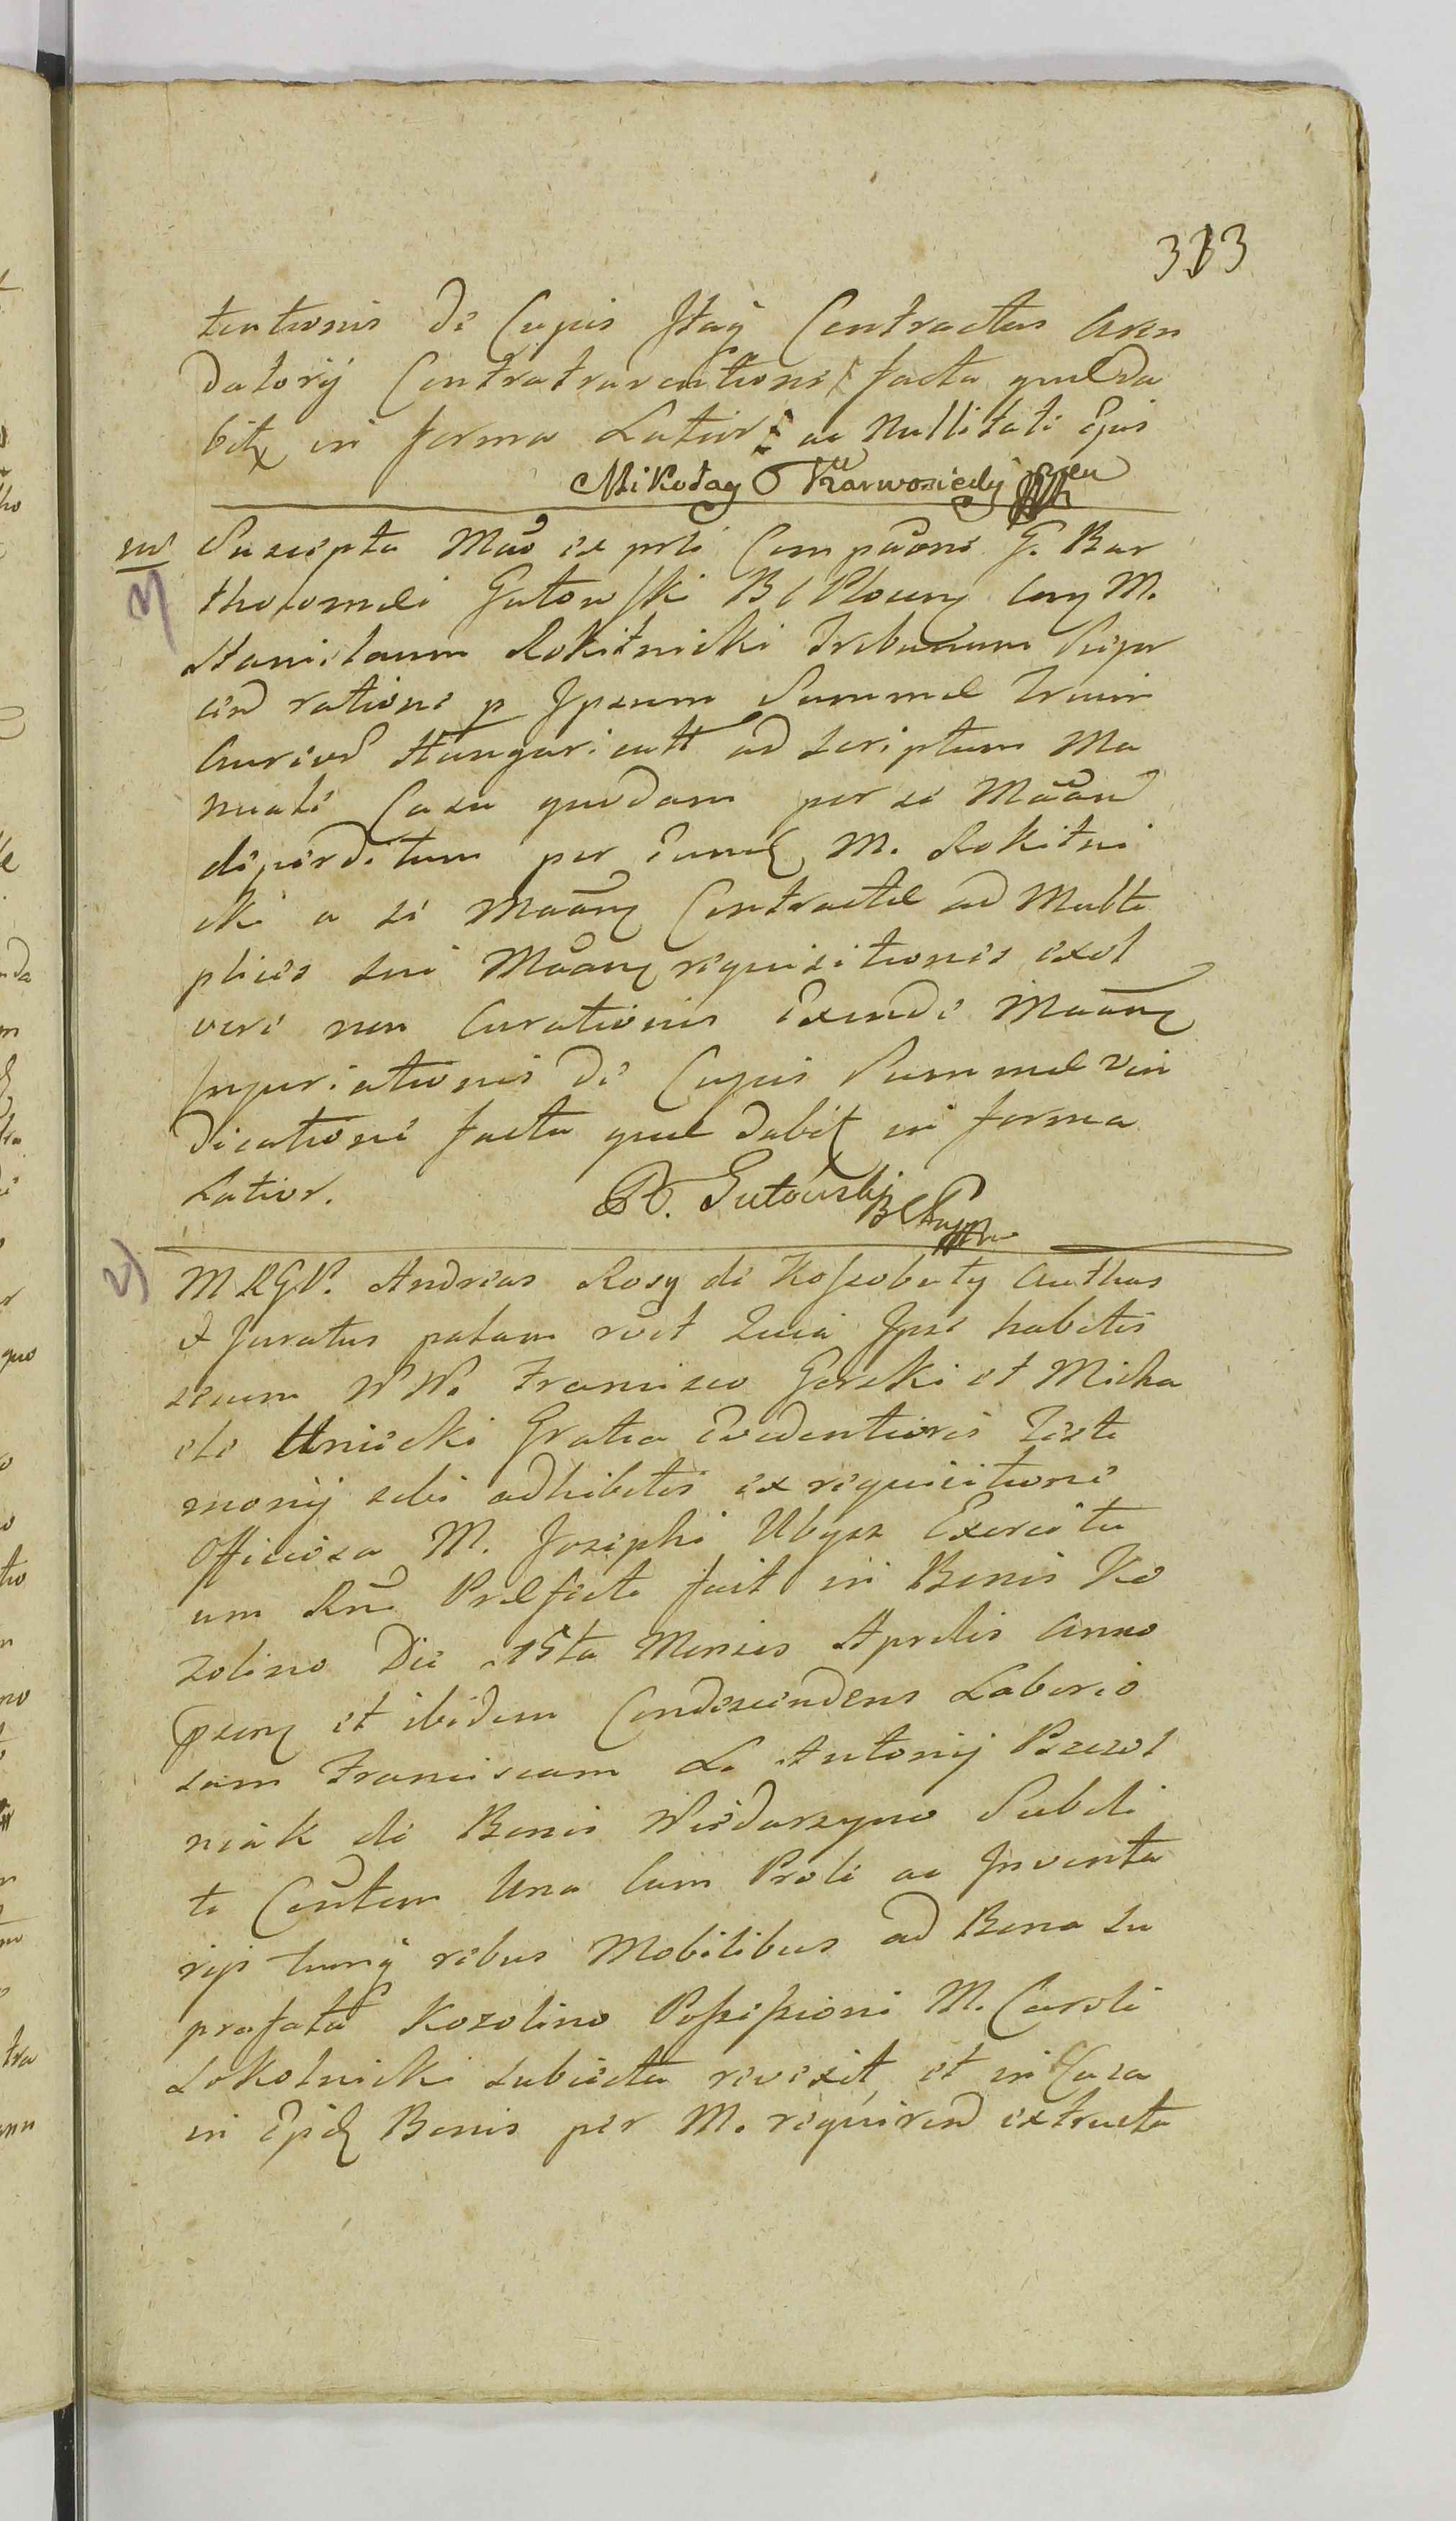 333
tentionis de Cujus Stay Contractus Aren
datorij Contratraventione facta quæ da
bitx in forma Latior ac Nullitati Ejus
Mikołay Karwosiecky
Suscepta ex prti Compaone G. Bar
tholomæi Gutowski B C Ploceny Cory M.
Stanislaum Rokitnicki Tribunum Sierp
cen ratione p Ipsum Summæ Trium
Aureor Hungaricall ad scriptum Ma
nuale Casu quodam per se Maand
deperditum per eund M. Rokitni
cki a se Maanz Contractæ ad Multi
plices sui Maanz requisitiones exol
vere non Curationis Exinde Maanz
Injuriationis de Cujus Summæ Vin
dicatione facta quæ dabit in forma
Latior. B. Gutowski
M R G P. Andreas Rosy de Kossobuty Authus
& Juratus palam rcit Quia Ipse habitis
secum N N. Francisco Gorski et Micha
ele Uniecki Gratia Evidentioris Testi
monij sibi adhibitis ex requisitione
Officiosa M. Josephi Ubysz Exercitu
um Rni Præfecti fuit in Bonis Ko
zolino Die 15ta Mensis Aprilis Anno
psenz et ibidem Condescendens Laborio
sam Franciscam L. Antonij Pszczol
niak de Bonis Niedarzyno Subdi
ti Contem Una Cum Prole ac Inventa
rijs rebus Mobilibus ad Bona su
prafata Kozolino Possessioni M. Caroli
Sokolnicki subiecta revexit, et in Casa
in Ejsd Bonis per M. requiren extructa